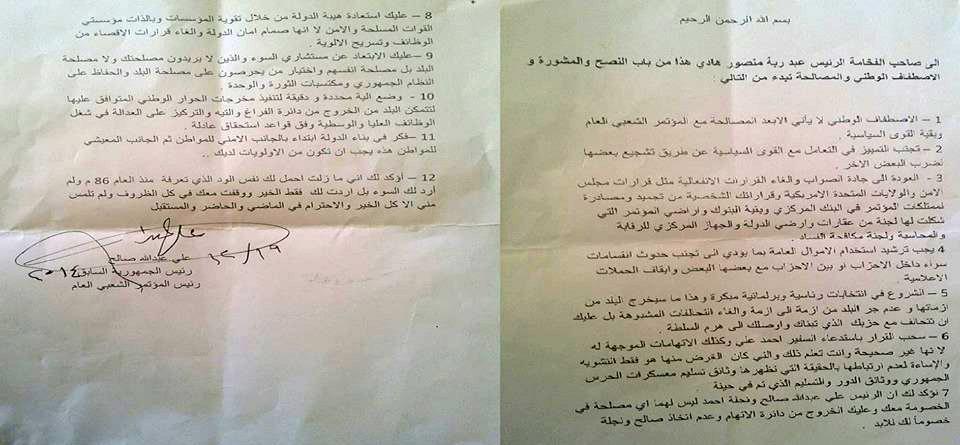 بسم الله الرحمن الرحيم
الى صاحب الفخامة الرئيس عبد ربة منصور هادي هذا من باب النصح والمشورة و
الاصطفاف الوطني والمصالحة تبدء من التالي .
1 – الاصطفاف الوطني لا يأتي الابعد المصالحة مع المؤتمر الشعبي العام
وبقية القوى السياسية .
2 – تجنب التمييز في التعامل مع القوى السياسية عن طريق تشجيع بعضها
لضرب البعض الاخر .
3 - العودة الى جادة الصواب والغاء القرارات الانفعالية مثل قرارات مجلس
الامن والولايات المتحدة الامريكية وقراراتك الشخصية من تجميد ومصادرة
لممتلكات المؤتمر في البنك المركزي وبقية البنوك واراضي المؤتمر التي
شكلت لها لجنة من عقارات وارضي الدولة والجهاز المركزي للرقابة
والمحاسبة ولجنة مكافحة الفساد .
4 يجب ترشيد استخدام الاموال العامة بما يودي الى تجنب حدوث انقسامات
سواء داخل الاحزاب او بين الاحزاب مع بعضها البعض وايقاف الحملات
الاعلامية .
5 – الشروع في انتخابات رئاسية وبرلمانية مبكرة وهذا ما سيخرج البلد من
ازماتها و عدم جر البلد من ازمة الى ازمة والغاء التحالفات المشبوهة بل عليك
ان تتحالف مع حزبك الذي تبناك واوصلك الى هرم السلطة .
6 – سحب القرار باستدعاء السفير احمد علي وكذلك الاتهامات الموجهة له
لا نها غير صحيحة وانت تعلم ذلك والتي كان الغرض منها هو فقط التشويه
والإساءة لعدم ارتباطها بالحقيقة التي تظهرها وثائق تسليم معسكرات الحرس
الجمهوري ووثائق الدور والتسليم الذي تم في حينة
7 نؤكد لك ان الرئيس علي عبدالله صالح ونجلة احمد ليس لهما اي مصلحة في
الخصومة معك وعليك الخروج من دائرة الاتهام وعدم اتخاذ صالح ونجلة
خصوماً لك للابد .
8 – عليك استعادة هيبة الدولة من خلال تقوية المؤسسات وبالذات مؤسستي
القوات المسلحة والامن لا نها صمام امان الدولة والغاء قرارات الاقصاء من
الوظائف وتسريح الالوية .
9 –عليك الابتعاد عن مستشاري السوء والذين لا يريدون مصلحتك ولا مصلحة
البلد بل مصلحة انفسهم واختيار من يحرصون على مصلحة البلد والحفاظ على
النظام الجمهوري ومكتسبات الثورة والوحدة .
10 - وضع الية محددة و دقيقة لتنفيذ مخرجات الحوار الوطني المتوافق عليها
لتتمكن البلد من الخروج من دائرة الفراغ والتيه والتركيز على العدالة في شغل
الوظائف العليا والوسطية وفق قواعد استحقاق عادلة .
11 –فكر في بناء الدولة ابتداء بالجانب الامني للمواطن ثم الجانب المعيشي
للمواطن هذه يجب ان تكون من الاولويات لديك ..
12 – أؤكد لك اني ما زلت احمل لك نفس الود الذي تعرفة منذ العام 86 م ولم
أرد لك السوء بل اردت لك فقط الخير ووقفت معك في كل الظروف ولم تلمس
مني الا كل الخير والاحترام في الماضي والحاضر والمستقبل
علي عبدالله صالح
رئيس الجمهورية السابق
رئيس المؤتمر الشعبي العام